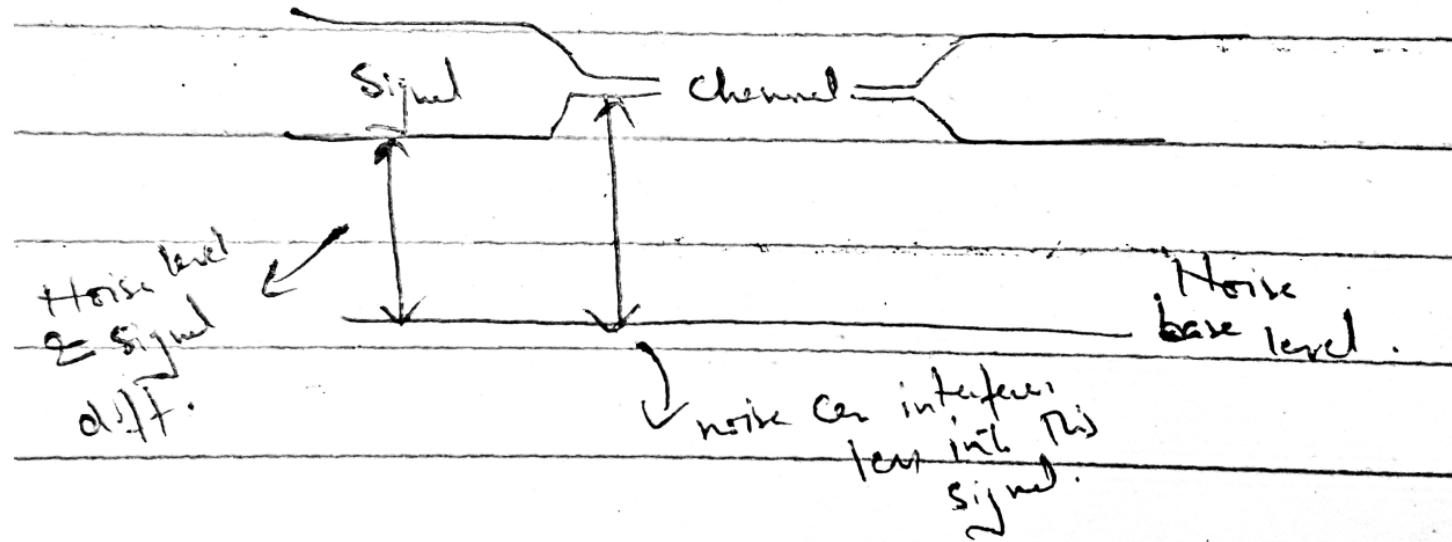 Signal
Channel
Noise level
& Signal
diff.
Noise
base level.
noise can interfere
less into this
signal.